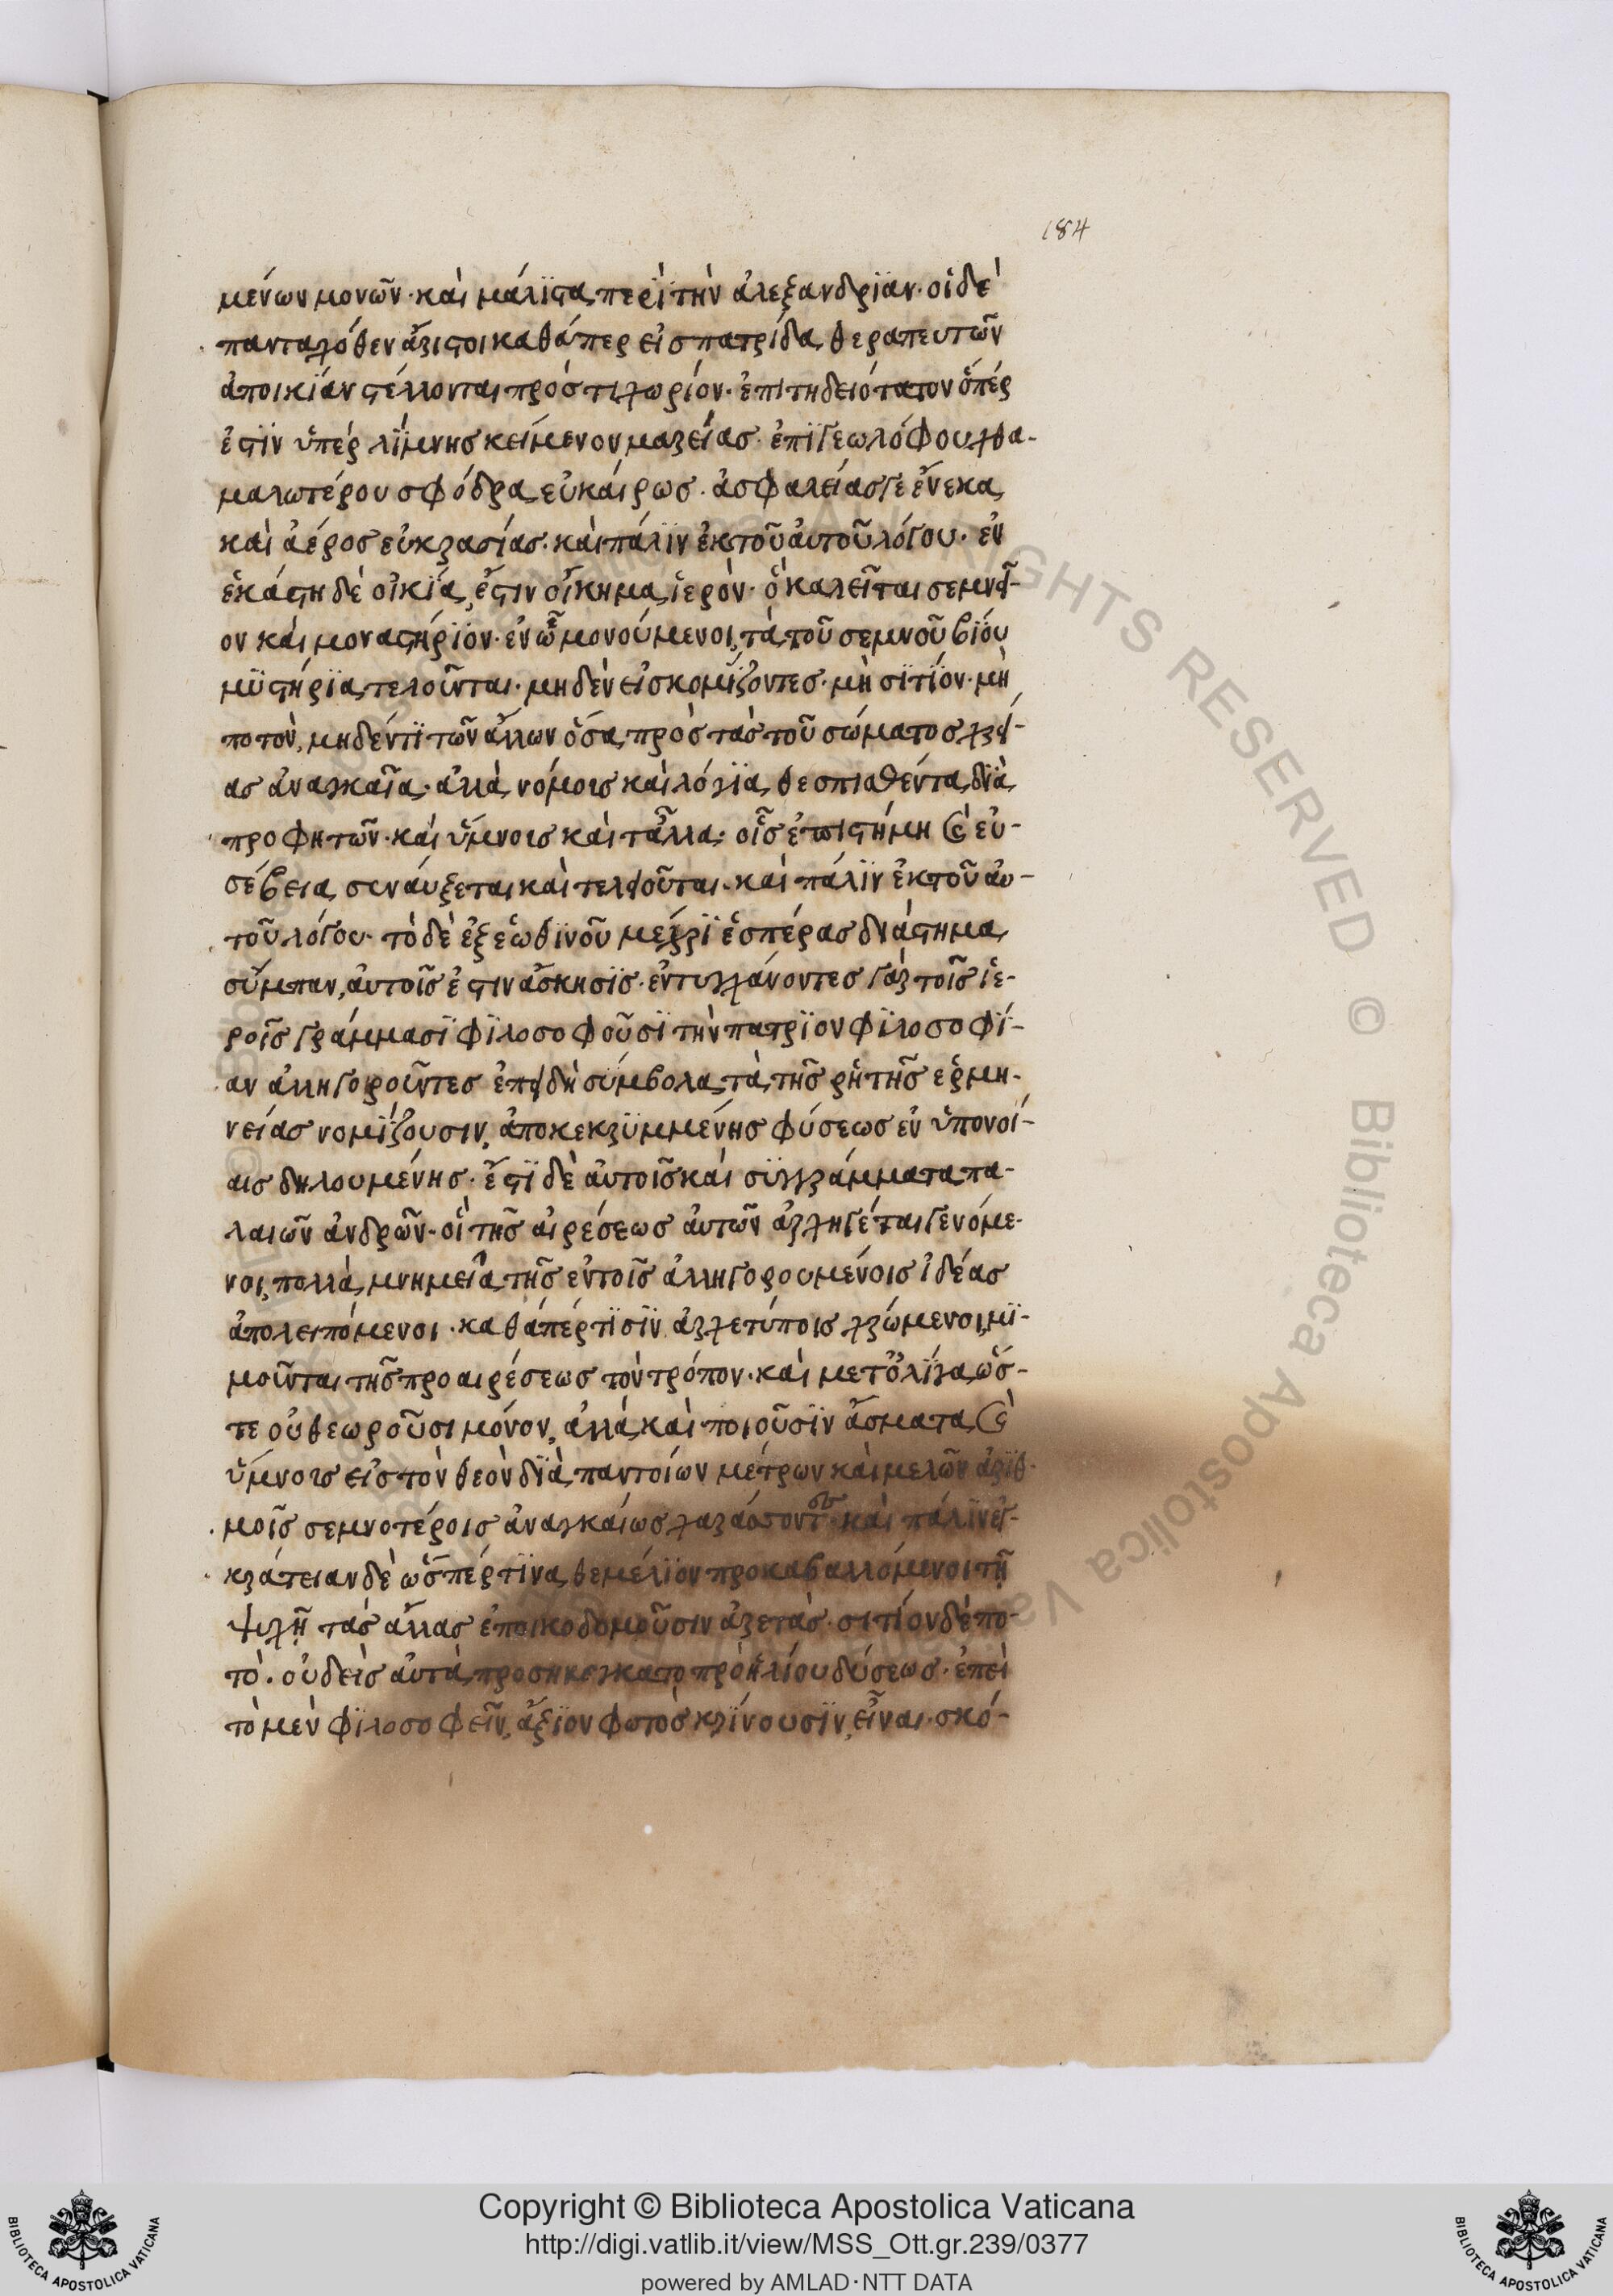 184
μένων μονῶν· καὶ μάλϊστα περὶ τὴν ἀλεξανδρϊαν· οἱ δὲ
πανταχόθεν ἄριστοι καθάπερ εἰς πατρίδα θεραπευτῶν
ἀποικίαν στέλλονται πρός τι χωρίον· ἐπιτηδειότατον ὅπέρ
ἐστϊν ὑπὲρ λίμνης κείμενον μαρείας· ἐπὶ γεωλόφου χθα-
μαλωτέρου σφόδρα εὐκαίρως· ἀσφαλείας γε ἕνεκα
καὶ ἀέρος εὐκρασίας· καὶ πάλϊν ἐκ τοῦ αὐτοῦ λόγου· ἐν
ἑκάστη δὲ οἰκία, ἔστιν οἴκημα ἱερὸν· ὃ καλεῖται σεμνεῖ-
ον καὶ μοναστήρϊον· ἐν ὧ μονούμενοι, τὰ τοῦ σεμνοῦ βίου
μϋστήρϊα τελοῦνται· μηδὲν εἰσκομίζοντες· μὴ σϊτϊον· μὴ
ποτὸν, μηδέν τϊ τῶν ἄλλων ὅσα πρὸς τὰς τοῦ σώματος χρεί-
ας ἀναγκαῖα· ἀλλὰ νόμοις καὶ λόγϊα θεσπισθέντα δϊὰ
προφητῶν· καὶ ὕμνοις καὶ τἆλλα· οἷς ἐπιστήμη καὶ εὐ-
σέβεια συναύξεται καὶ τελειοῦται· καὶ πάλϊν ἐκ τοῦ αὐ-
τοῦ λόγου· τὸ δὲ ἐξ ἑωθϊνοῦ μέχρϊ ἑσπέρας διάστημα
σύμπαν, αὐτοῖς ἐστιν ἄσκησϊς· ἐντυγχάνοντες γὰρ τοῖς ἱε-
ροῖς γράμμασϊ φϊλοσοφοῦσϊ τὴν πατρϊον φϊλοσοφϊ-
αν ἀλληγοροῦντες ἐπειδὴ σύμβολα τὰ τῆς ῥητῆς ἑρμη-
νείας νομίζουσιν, ἀποκεκρϋμμένης φύσεως ἐν ὑπονοί-
αις δηλουμένης· ἔστϊ δὲ αὐτοῖς καὶ σϋγγράμματα πα-
λαιῶν ἀνδρῶν· οἳ τῆς αἱρέσεως αὐτῶν ἀρχηγέται γενόμε-
νοι, πολλὰ μνημεῖα τῆς ἐν τοῖς ἀλληγορουμένοις ἰδέας
ἀπολειπόμενοι· καθάπέρ τϊσϊν ἀρχετύποις χρώμενοι, μϊ-
μοῦνται τῆς προαιρέσεως τὸν τρόπον· καὶ μετ' ὀλίγα ὥς-
τε οὐ θεωροῦσι μόνον, ἀλλὰ καὶ ποιοῦσϊν ἄσματα καὶ
ὕμνοις εἰς τὸν θεὸν δϊὰ παντοίων μέτρων καὶ μελῶν ἀρϊθ-
μοῖς σεμνοτέροις ἀναγκαίως χαράσσοντες· καὶ πάλϊν ἐγ-
κράτειαν δὲ ὥσπέρ τϊνα θεμέλϊον προκαβαλλόμενοι τῆ
ψυχῆ τὰς ἄλλας ἐποικοδομοῦσιν ἀρετάς· σιτίον δὲ πο-
τὸ· οὐδεὶς αὐτὰ προσηνεγκατο πρὸ ἡλίου δύσεως· ἐπεὶ
τὸ μὲν φϊλοσοφεῖν, ἄξϊον φωτὸς κρίνουσϊν, εἶναι· σκό-
Copyright © Biblioteca Apostolica Vaticana
http://digi.vatlib.it/view/MSS_Ott.gr.239/0377
powered by AMLAD·NTT DATA
BIBLIOTECA APOSTOLICA VATICANA
BIBLIOTECA APOSTOLICA VATICANA